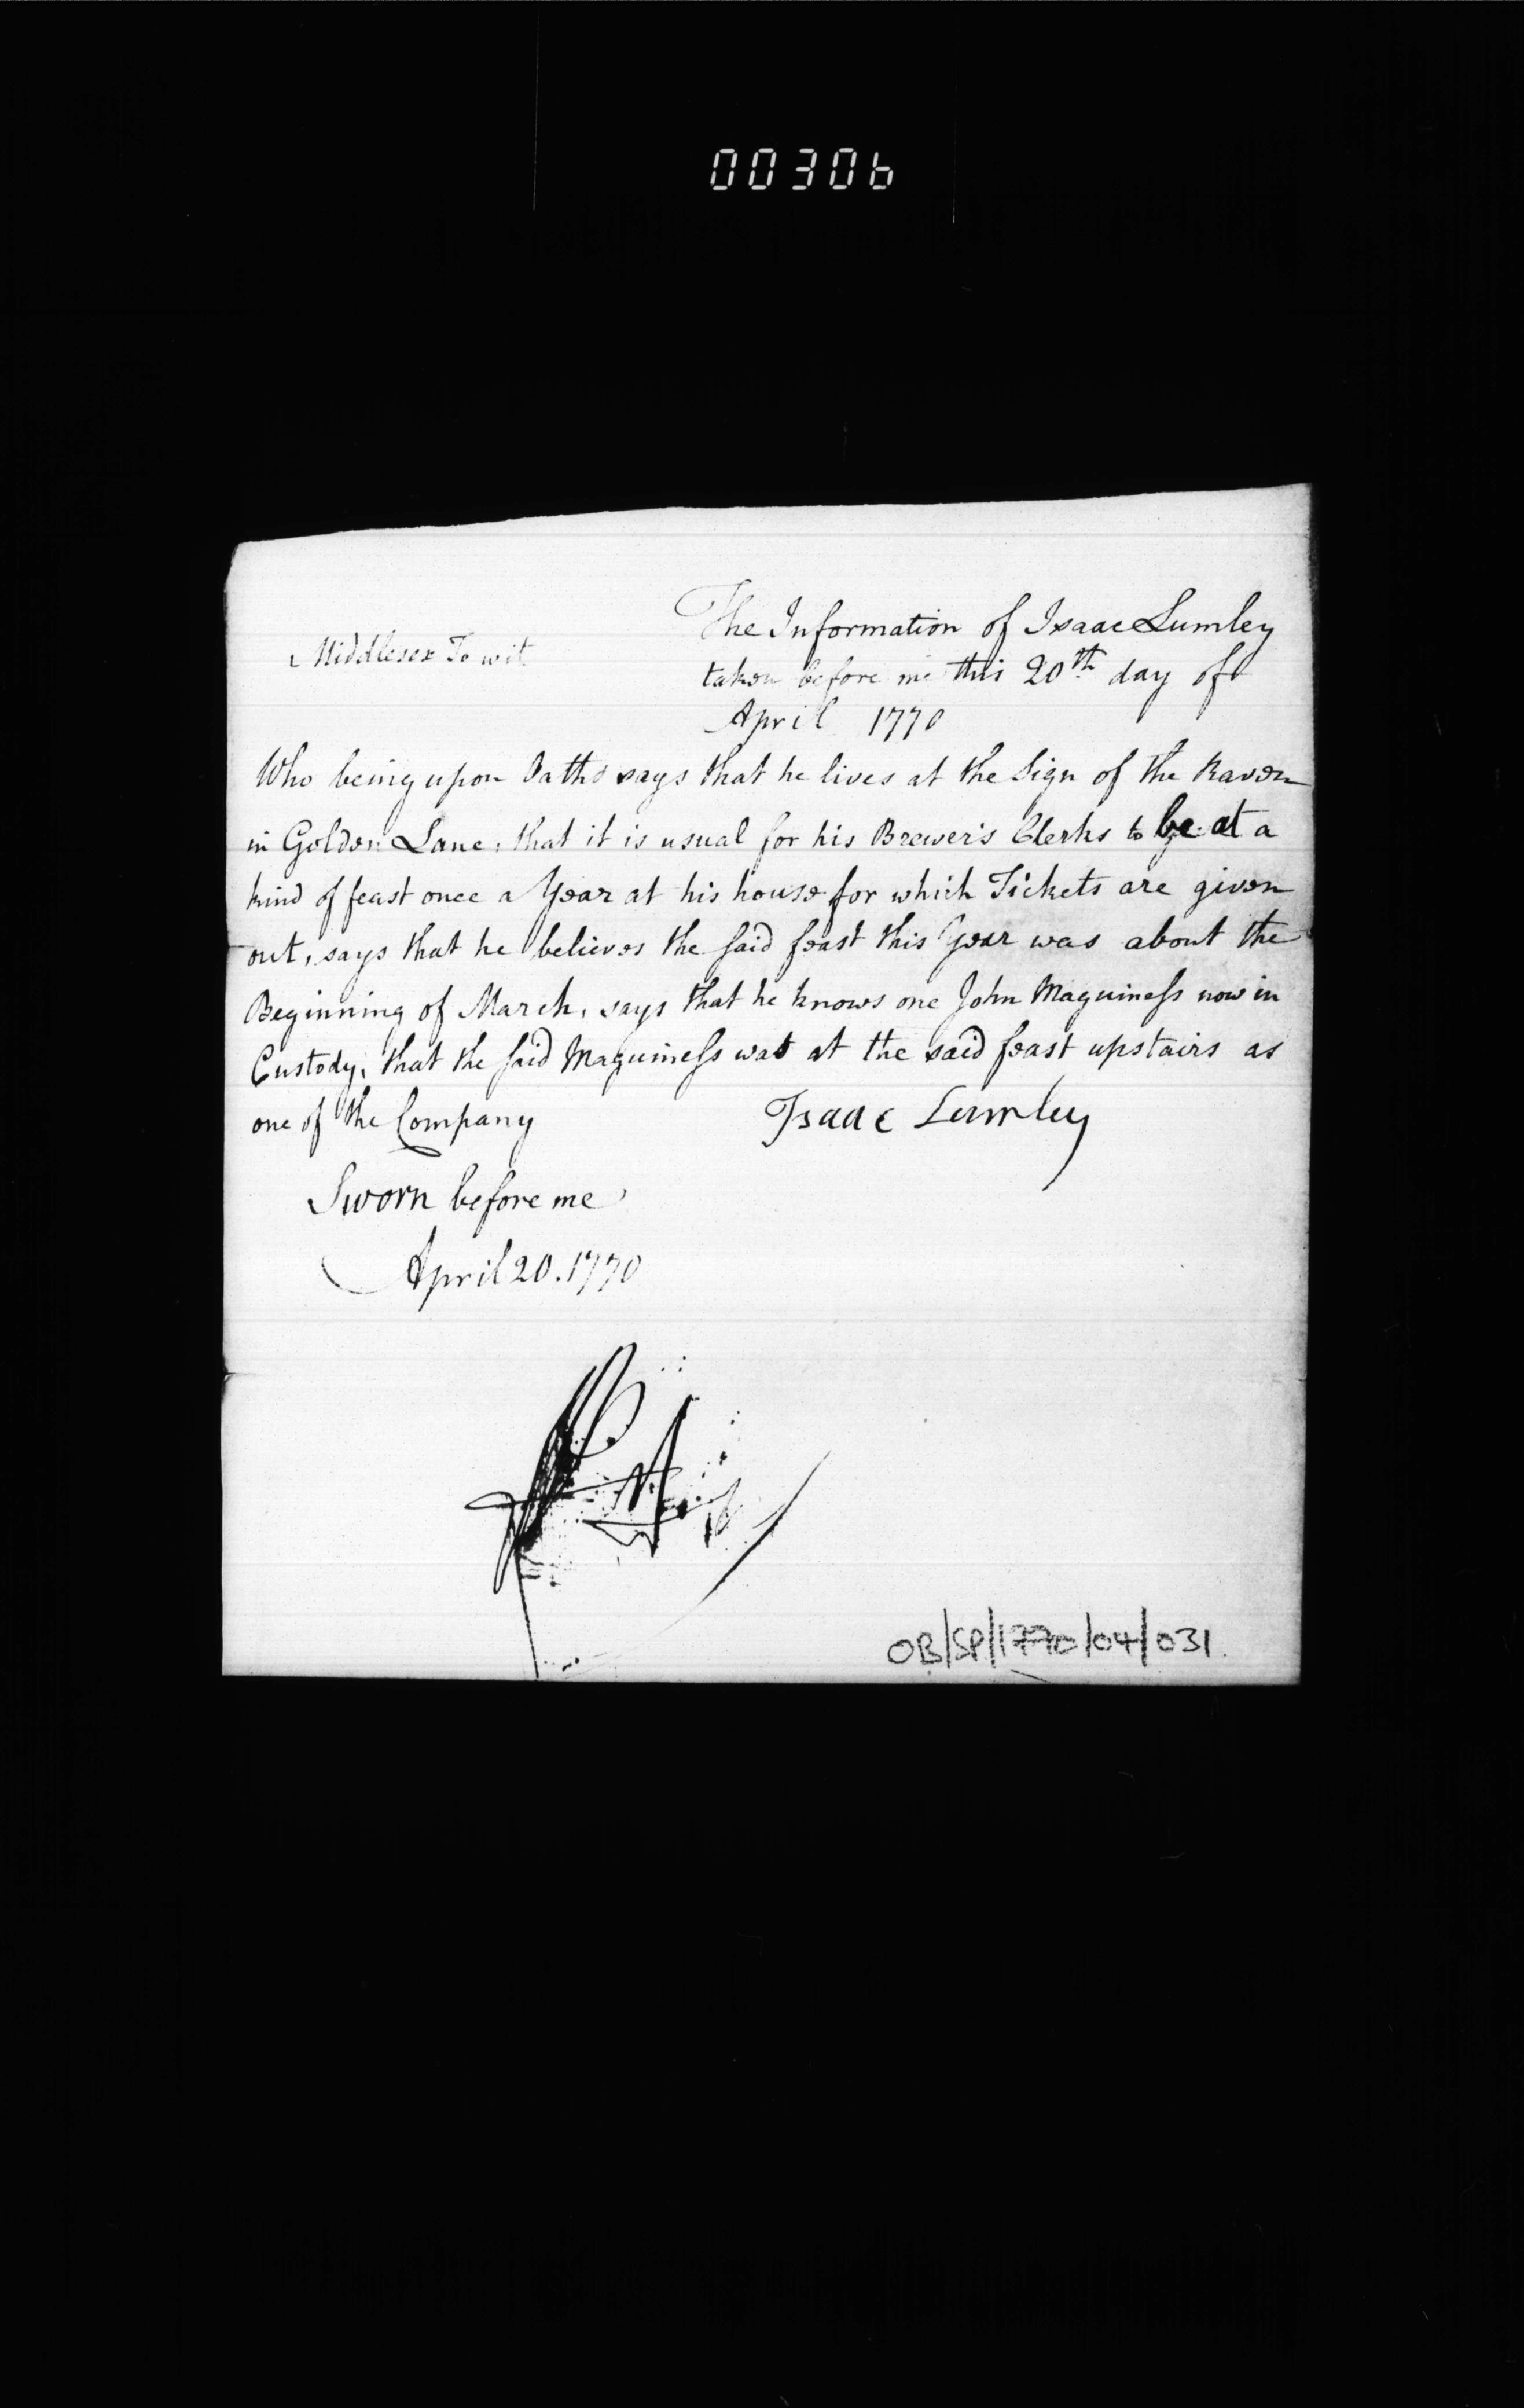 00306
The Information of Isaac Lumley
Middlesex To wit
taken before me this 20th day of
April 1770
Who being upon Oath says that he lives at the Sign of the Raven
in Golden Lane, that it is usual for his Brewer's Clerks to be at a
kind of feast once a Year at his house for which Tickets are given
out, says that he believes the said feast this Year was about the
Beginning of March, says that he knows one John Maguiness now in
Custody, that the said Maguiness was at the said feast upstairs as
one of the Company
Isaac Lumley
Sworn before me
April 20. 1770
OB/SP/1770/04/031.